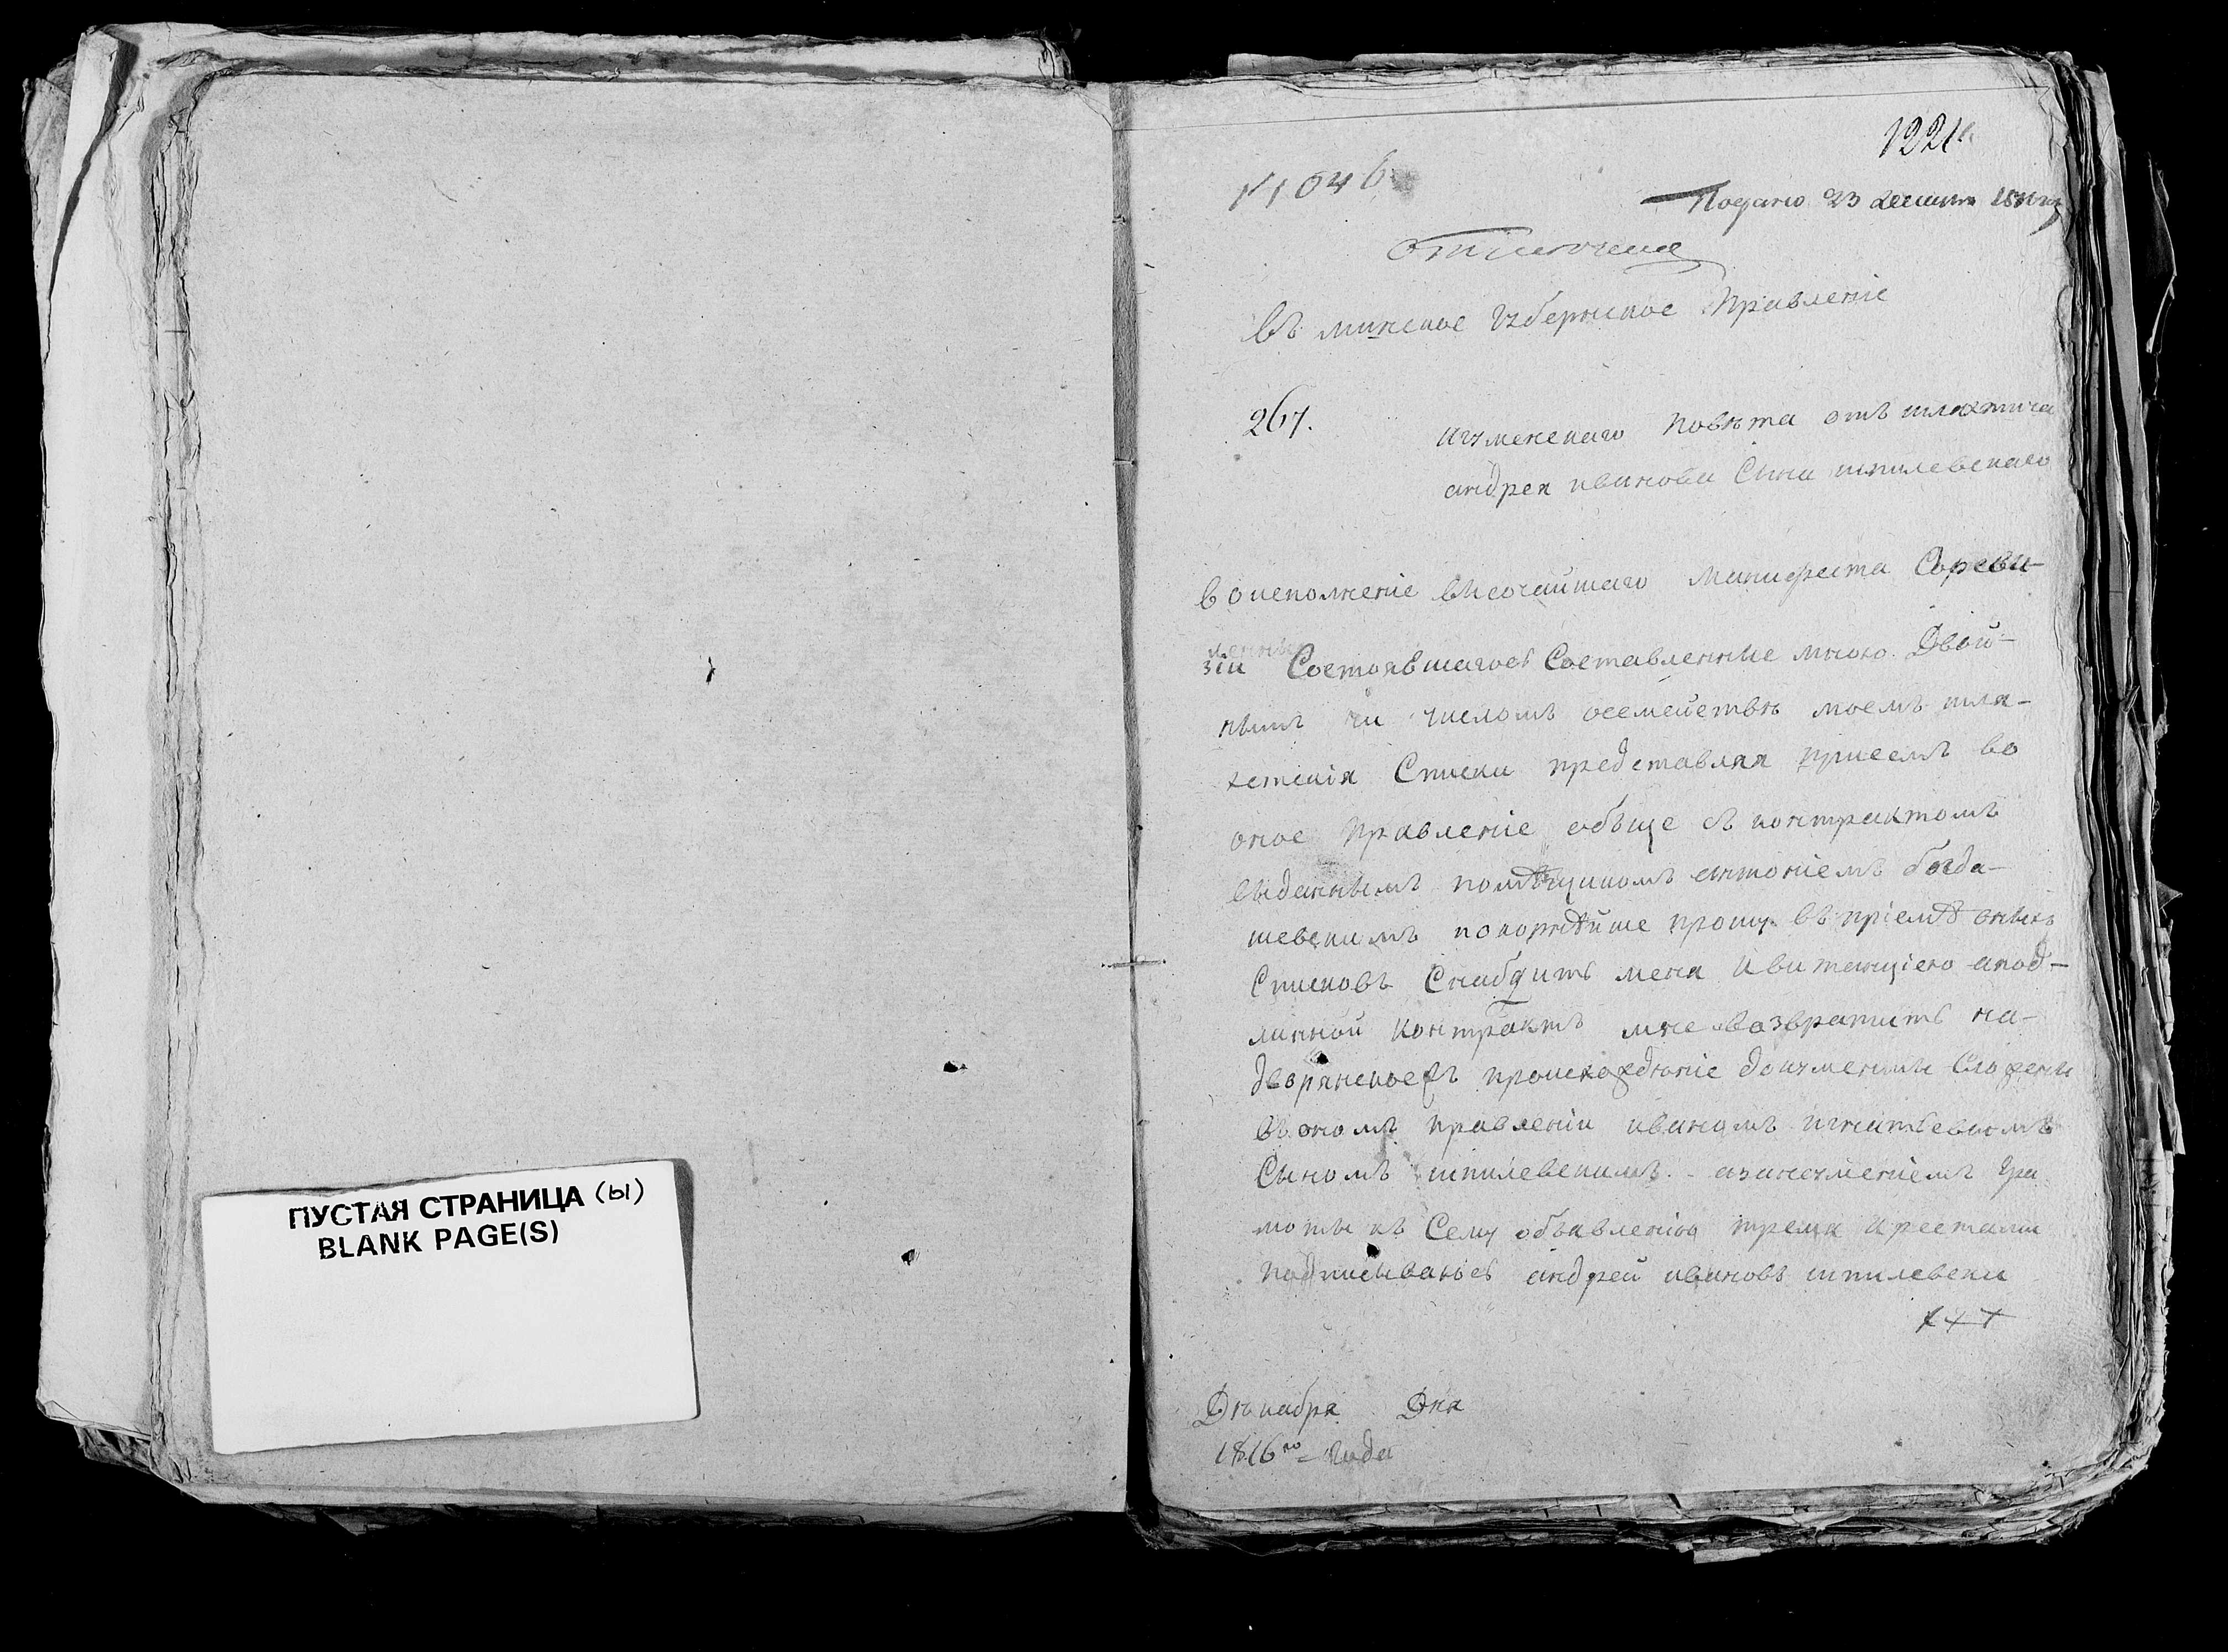 ПУСТАЯ СТРАНИЦА (ы)
BLANK PAGE(S)
1221
11046
Подано 23 декамъ
въ минское губернское Правленіе
267.
игуменскаго повѣта отъ шляхтича
андрея иванова Сина шпилевскаго
во исполненіе височайшаго манифеста Сореви-
зіи Состоявшагось Составленние мною Двой-
нымъ чи числомъ осемействѣ моемъ шля-
хетскія Списки представляя присемъ во
оное правленіе обѣще съ контрактомъ
виданнымъ помѣщикомъ антоніемъ богда-
шевскимъ покорнѣйше прошу въ пріемѣ онихъ
Списковъ Снабдить меня квитанціею апод-
линной контрактъ мне возвратить на-
дворянское происхожденіе документи Сложени
въ ономъ правленіи иваномъ игнатьевымъ
Сыномъ шпилевскимъ. азанеумѣніемъ гра
моти къ Сему объявленію тремя крестами
подписываюсь андрей ивановъ шпилевски
+++
Дѣкабря Дня
1816го года